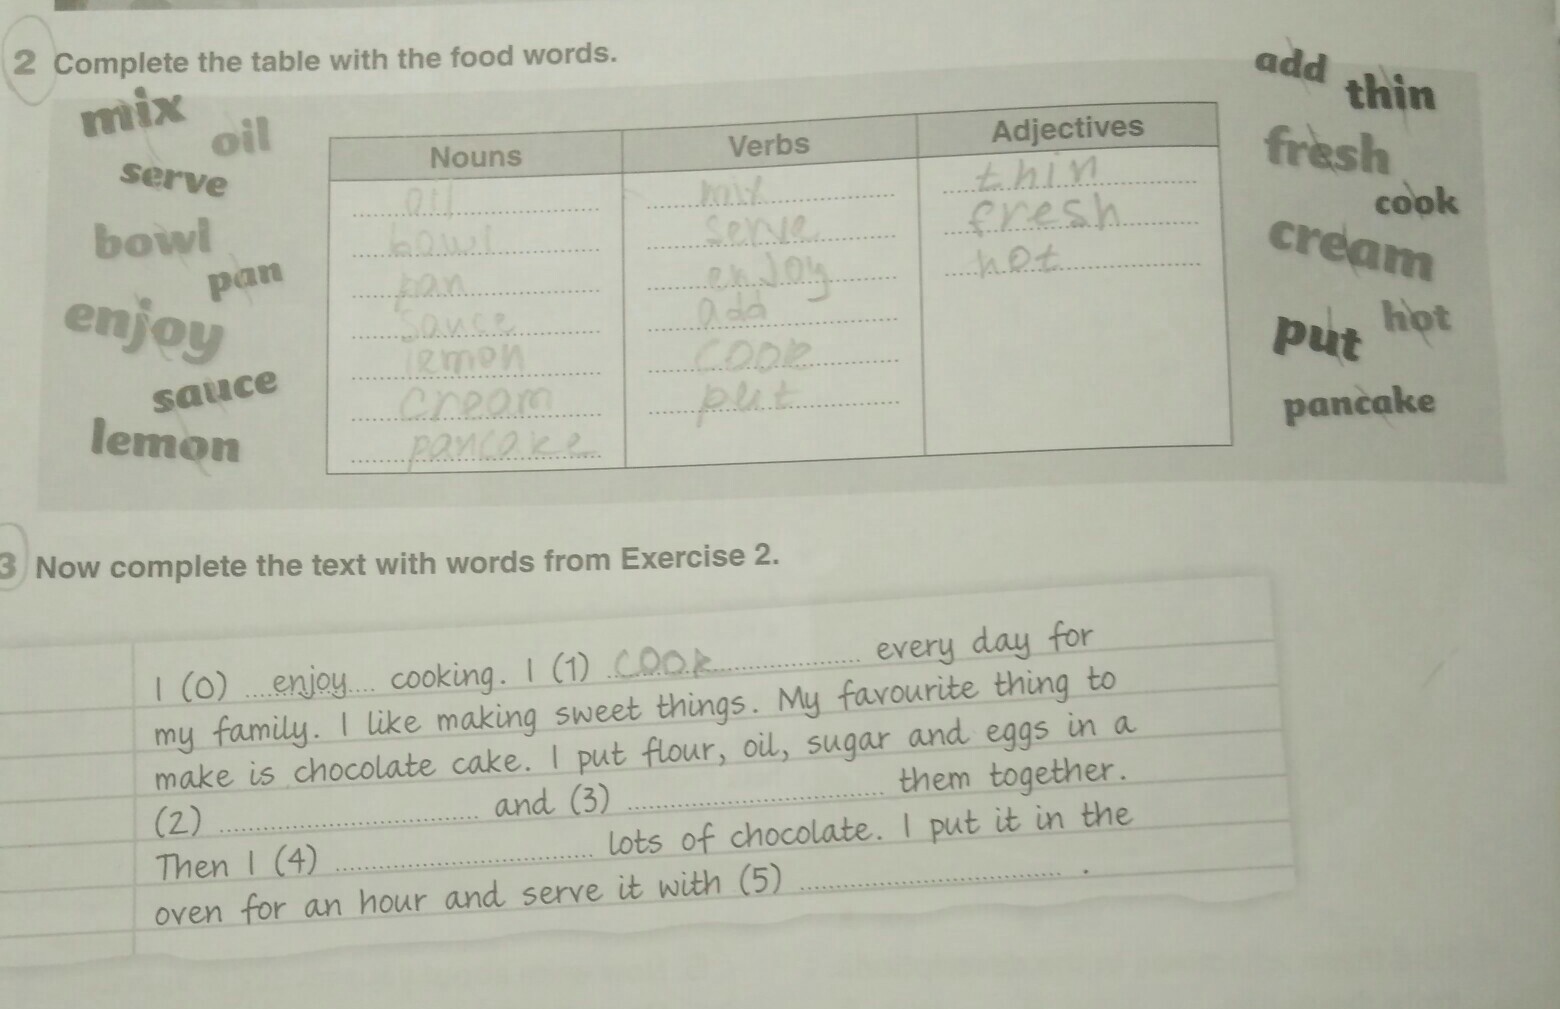 2 Complete the table with the food words.
mix
oil
serve
bowl
pan
enjoy
sauce
lemon
Nouns Verbs Adjectives
oil mix thin
bowl serve fresh
pan enjoy hot
sauce add
lemon cook
cream put
pancake
add
thin
fresh
cook
cream
hot
put
pancake
3 Now complete the text with words from Exercise 2.
I (0) ....enjoy.... cooking. I (1) cook .................... every day for
my family. I like making sweet things. My favourite thing to
make is chocolate cake. I put flour, oil, sugar and eggs in a
(2) .................... and (3) .................... them together.
Then I (4) .................... lots of chocolate. I put it in the
oven for an hour and serve it with (5) .................... .